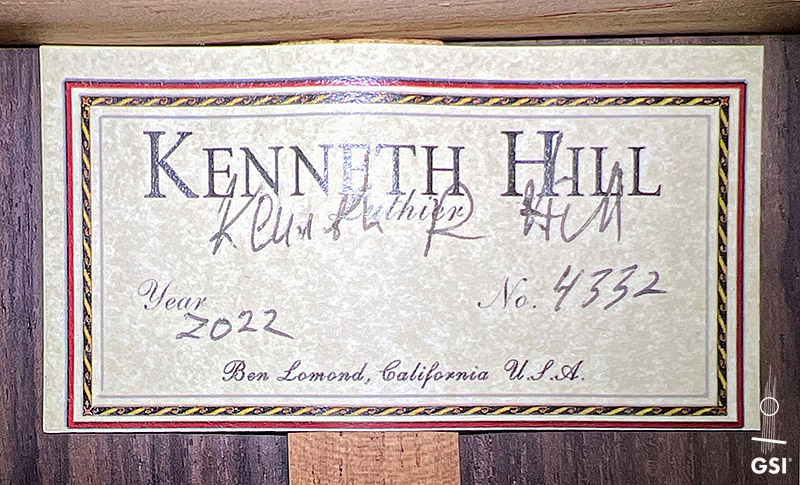 KENNETH HILL
Luthier
Kenneth R Hill
Year
2022
No. 4332
Ben Lomond, California U.S.A.
GSI